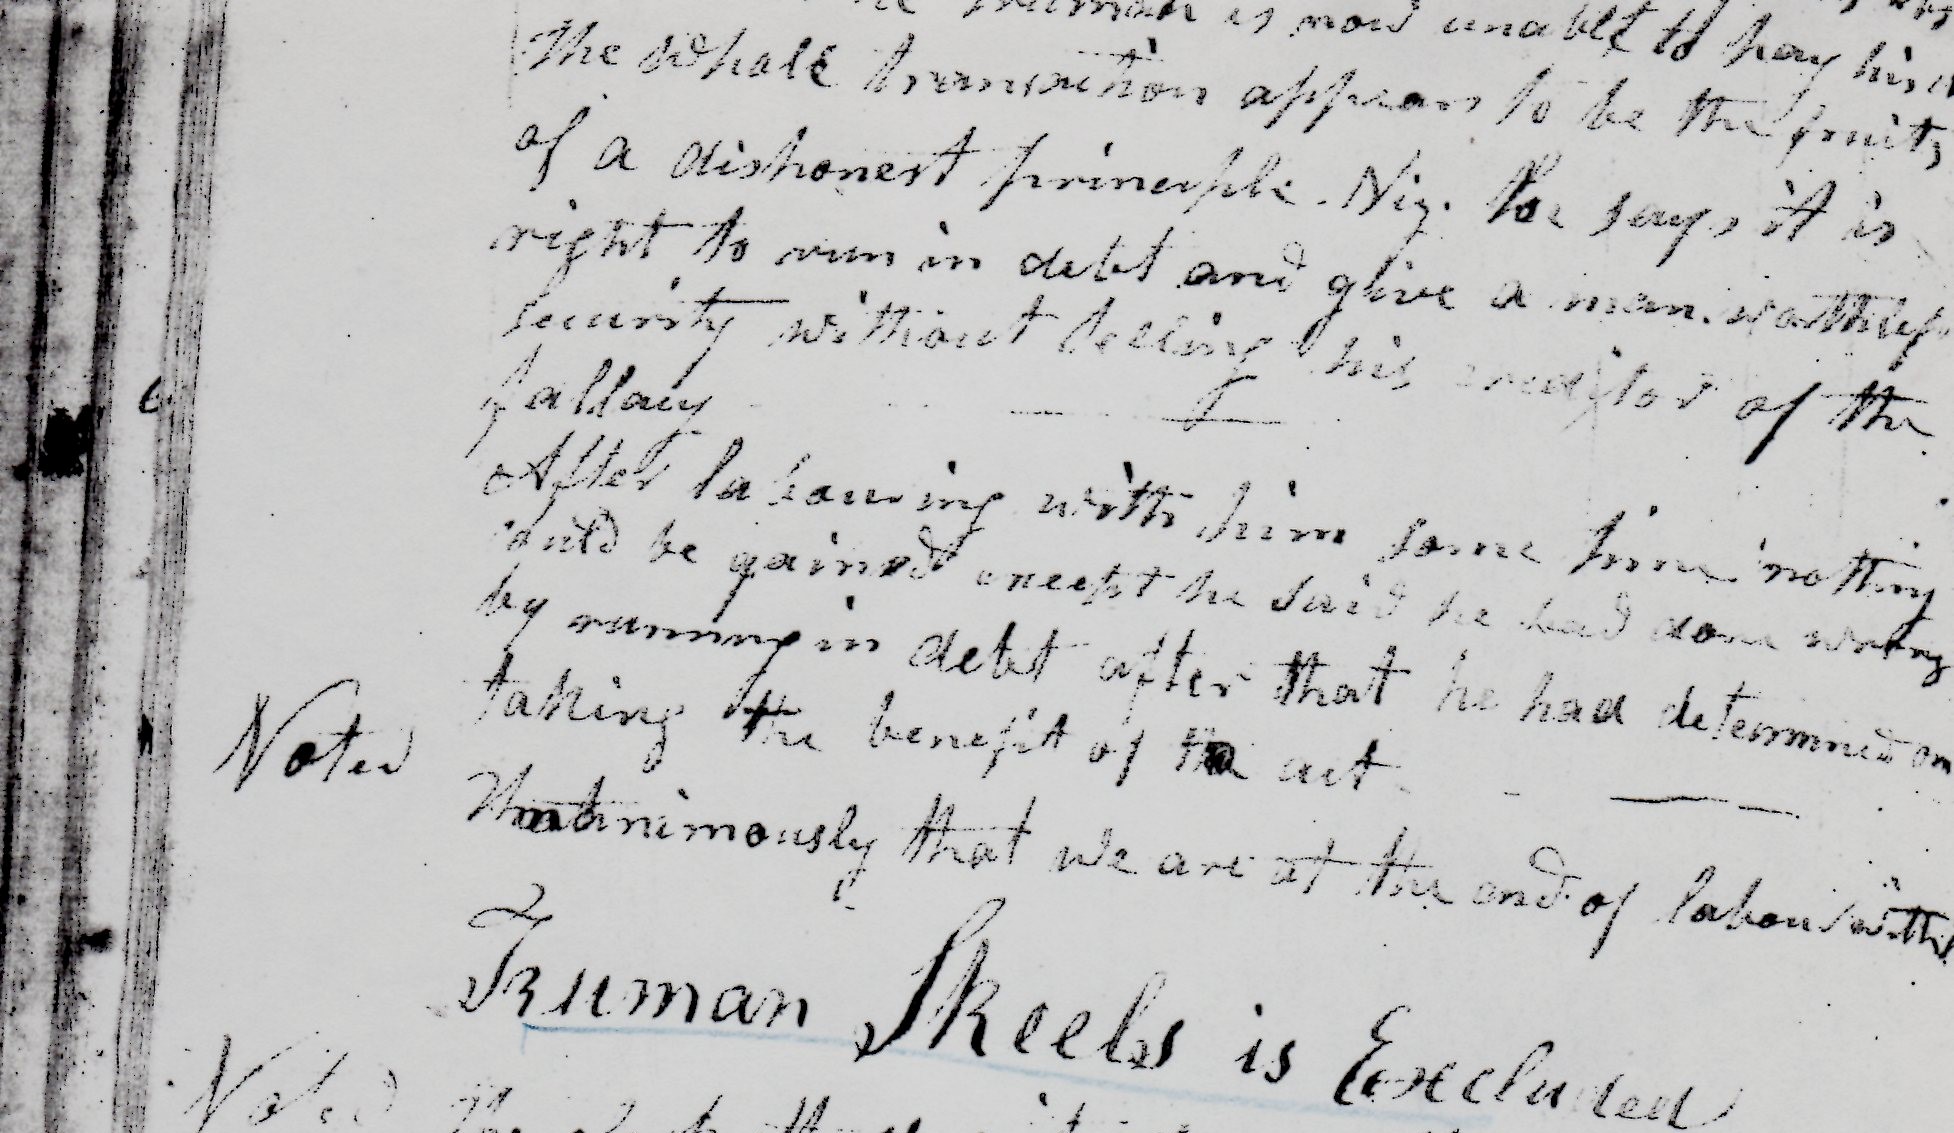 Truman is now unable to pay his
The whole transaction appears to be the fruits
of a dishonest principle. Viz. he says it is
right to run in debt and give a man worthless
security without telling his creditor of the
fallacy
After labouring with him some time nothing
could be gained except he said he had done wrong
by running in debt after that he had determined on
taking the benefit of the act.
Voted Unanimously that we are at the end of labour with
Truman Skeels is Excluded
Voted